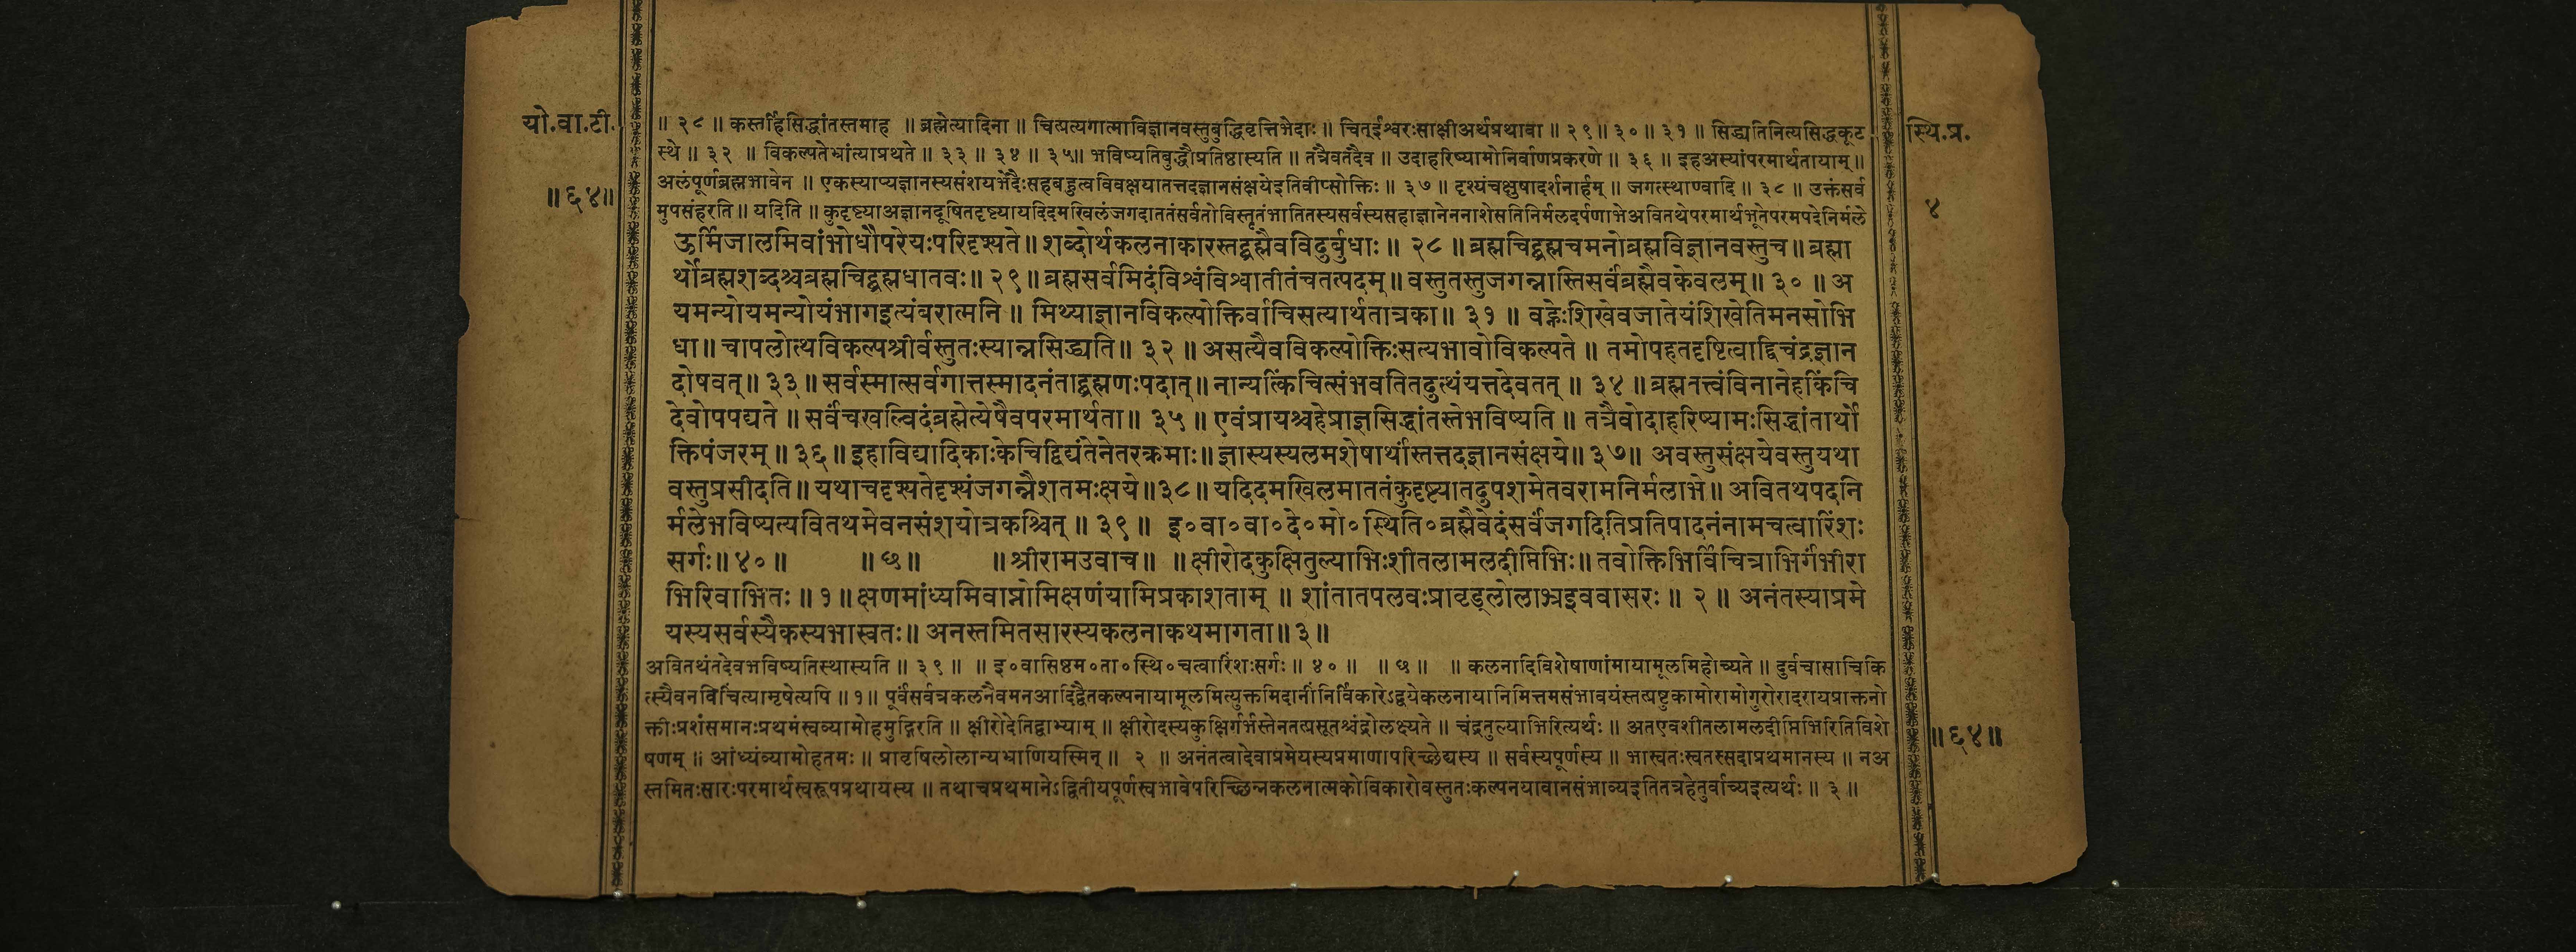 यो.वा.टी.
॥६४॥
स्थि.प्र.
४
॥ २८ ॥ कस्तर्हिसिद्धांतस्तमाह ॥ ब्रह्मेत्यादिना ॥ चित्प्रत्यगात्माविज्ञानवस्तुबुद्धिवृत्तिभेदाः ॥ चित्ईश्वरःसाक्षीअर्थप्रथावा ॥ २९॥ ३० ॥ ३१ ॥ सिद्ध्यतिनित्यसिद्धकूट
स्थे ॥ ३२ ॥ विकल्पतेभ्रांत्याप्रथते ॥ ३३ ॥ ३४ ॥ ३५॥ भविष्यतिबुद्धौप्रतिष्ठास्यति ॥ तत्रैवतदैव ॥ उदाहरिष्यामोनिर्वाणप्रकरणे ॥ ३६ ॥ इहअस्यांपरमार्थतायाम् ॥
अलंपूर्णब्रह्मभावेन ॥ एकस्याप्यज्ञानस्यसंशयभेदैःसहबहुत्वविवक्षयातत्तदज्ञानसंक्षयेइतिवीप्सोक्तिः ॥ ३७ ॥ दृश्यंचक्षुषादर्शनार्हम् ॥ जगत्स्थाण्वादि ॥ ३८ ॥ उक्तंसर्व
मुपसंहरति ॥ यदिति ॥ कुदृष्ट्याअज्ञानदूषितदृष्ट्यायदिदमखिलंजगदाततंसर्वतोविस्तृतंभातितस्यसर्वस्यसहाज्ञानेननाशेसतिनिर्मलदर्पणाभेअवितथेपरमार्थभूतेपरमपदेनिर्मले
ऊर्मिजालमिवांभोधौपरेयःपरिदृश्यते॥ शब्दोर्थकलनाकारस्तद्ब्रह्मैवविदुर्बुधाः ॥ २८ ॥ब्रह्मचिद्ब्रह्मचमनोब्रह्मविज्ञानवस्तुच॥ ब्रह्मा
र्थोब्रह्मशब्दश्चब्रह्मचिद्ब्रह्मधातवः॥ २९॥ ब्रह्मसर्वमिदंविश्वंविश्वातीतंचतत्पदम् ॥ वस्तुतस्तुजगन्नास्तिसर्वंब्रह्मैवकेवलम्॥ ३० ॥ अ
यमन्योयमन्योयंभागइत्यंबरात्मनि ॥ मिथ्याज्ञानविकल्पोक्तिर्वाचिसत्यार्थतात्रका॥ ३१ ॥ वह्नेःशिखेवजातेयंशिखेतिमनसोभि
धा॥ चापलोत्थविकल्पश्रीर्वस्तुतःस्यान्नसिद्ध्यति॥ ३२ ॥ असत्यैवविकल्पोक्तिःसत्यभावोविकल्पते ॥ तमोपहतदृष्टित्वाद्द्विचंद्रज्ञान
दोषवत्॥ ३३॥ सर्वस्मात्सर्वगात्तस्मादनंताद्ब्रह्मणःपदात्॥ नान्यत्किंचित्संभवतितदुत्थंयत्तदेवतत् ॥ ३४ ॥ब्रह्मतत्त्वंविनानेहकिंचि
देवोपपद्यते ॥ सर्वंचखल्विदंब्रह्मेत्येषैवपरमार्थता॥ ३५ ॥ एवंप्रायश्चहेप्राज्ञसिद्धांतस्तेभविष्यति ॥ तत्रैवोदाहरिष्यामःसिद्धांतार्थो
क्तिपंजरम् ॥ ३६ ॥इहाविद्यादिकाःकेचिद्विद्यंतेनेतरक्रमाः॥ ज्ञास्यस्यलमशेषार्थांस्तत्तदज्ञानसंक्षये॥ ३७॥ अवस्तुसंक्षयेवस्तुयथा
वस्तुप्रसीदति॥ यथाचदृश्यतेदृश्यंजगन्नैशतमःक्षये॥३८॥ यदिदमखिलमाततंकुदृष्ट्यातदुपशमेतवरामनिर्मलाभे॥ अवितथपदनि
र्मलेभविष्यत्यवितथमेवनसंशयोत्रकश्चित् ॥ ३९ ॥ इ॰वा॰वा॰दे॰मो॰स्थिति॰ब्रह्मैवेदंसर्वंजगदितिप्रतिपादनंनामचत्वारिंशः
सर्गः॥ ४० ॥ ॥ ७ ॥ ॥ श्रीरामउवाच॥ ॥ क्षीरोदकुक्षितुल्याभिःशीतलामलदीप्तिभिः॥ तवोक्तिभिर्विचित्राभिर्गंभीरा
भिरिवाभितः ॥ १ ॥ क्षणमांध्यमिवाप्नोमिक्षणंयामिप्रकाशताम् ॥ शांतातपलवःप्रावृड्लोलाभ्रइववासरः ॥ २ ॥ अनंतस्याप्रमे
यस्यसर्वस्यैकस्यभास्वतः॥ अनस्तमितसारस्यकलनाकथमागता॥ ३॥
अवितथंतदेवभविष्यतिस्थास्यति ॥ ३९ ॥ ॥ इ॰वासिष्ठम॰ता॰स्थि॰चत्वारिंशःसर्गः ॥ ४० ॥ ॥ ७ ॥ ॥ कलनादिविशेषाणांमायामूलमिहोच्यते ॥ दुर्वचासाचिकि
त्स्यैवनविचित्यामृषेत्यपि ॥ १॥ पूर्वंसर्वत्रकलनैवमनआदिद्वैतकल्पनायामूलमित्युक्तमिदानींनिर्विकारेऽद्वयेकलनायानिमित्तमसंभावयंस्तत्प्रष्टुकामोरामोगुरोरादरायप्राक्तनो
क्तीःप्रशंसमानःप्रथमंस्वव्यामोहमुद्गिरति ॥ क्षीरोदेतिद्वाभ्याम् ॥ क्षीरोदस्यकुक्षिर्गर्भस्तेनतत्प्रसूतश्चंद्रोलक्ष्यते ॥ चंद्रतुल्याभिरित्यर्थः ॥ अतएवशीतलामलदीप्तिभिरितिविशे
षणम् ॥ आंध्यंव्यामोहतमः ॥ प्रावृषिलोलान्यभ्राणियस्मिन् ॥ २ ॥ अनंतत्वादेवाप्रमेयस्यप्रमाणापरिच्छेद्यस्य ॥ सर्वस्यपूर्णस्य ॥ भास्वतःस्वतस्सदाप्रथमानस्य ॥ नअ
स्तमितःसारःपरमार्थस्वरूपप्रथायस्य ॥ तथाचप्रथमानेऽद्वितीयपूर्णस्वभावेपरिच्छिन्नकलनात्मकोविकारोवस्तुतःकल्पनयावानसंभाव्यइतितत्रहेतुर्वाच्यइत्यर्थः ॥ ३ ॥
॥६४॥